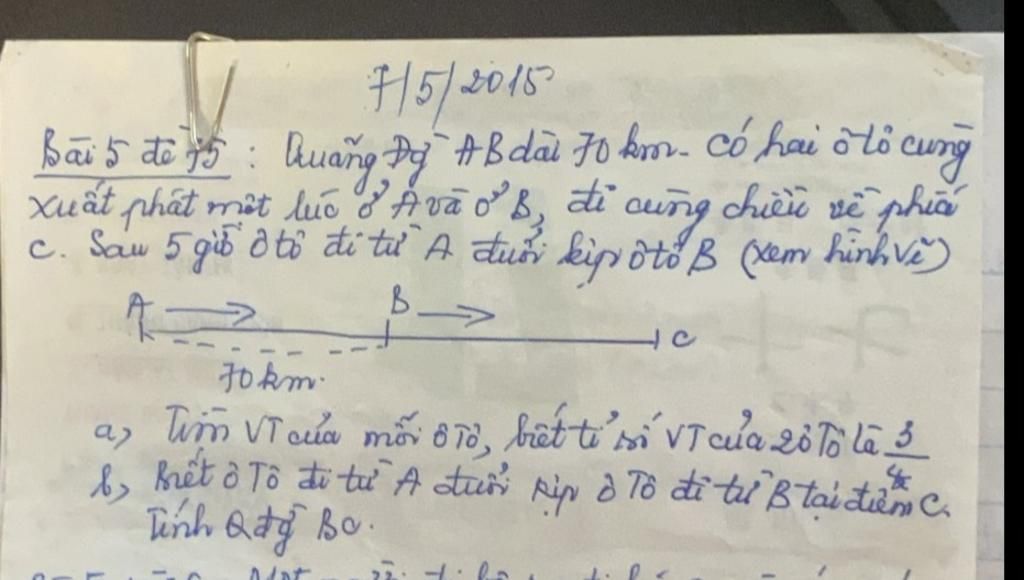 7/5/2015
Bài 5 đề 75 : Quãng Đg AB dài 70 km. Có hai ô tô cùng
xuất phát một lúc ở A và ở B, đi cùng chiều về phía
C. Sau 5 giờ ô tô đi từ A đuổi kịp ô tô B (xem hình vẽ)
A B C
70 km.
a, Tìm VT của mỗi ô Tô, biết tỉ số VT của 2 ô Tô là 3/4
b, Biết ô Tô đi từ A đuổi kịp ô Tô đi từ B tại điểm C.
Tính Q đg BC.